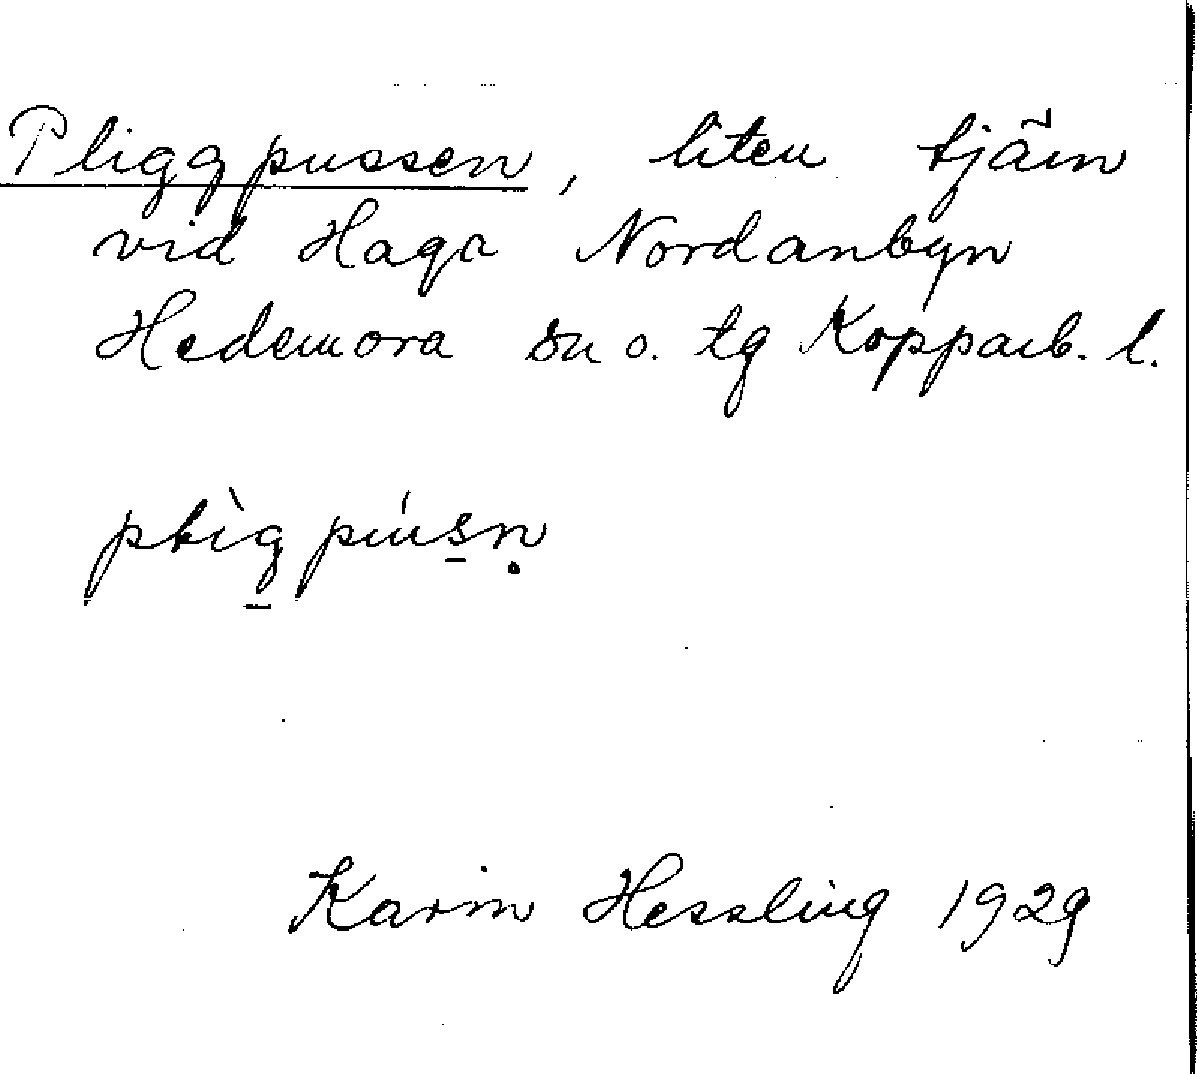 Pliggpussen, liten tjärn
vid Haga Nordanbyn
Hedemora sn o. tg Kopparb. l.
Karin Hessling 1929